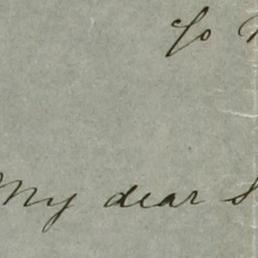 ℅
My dear